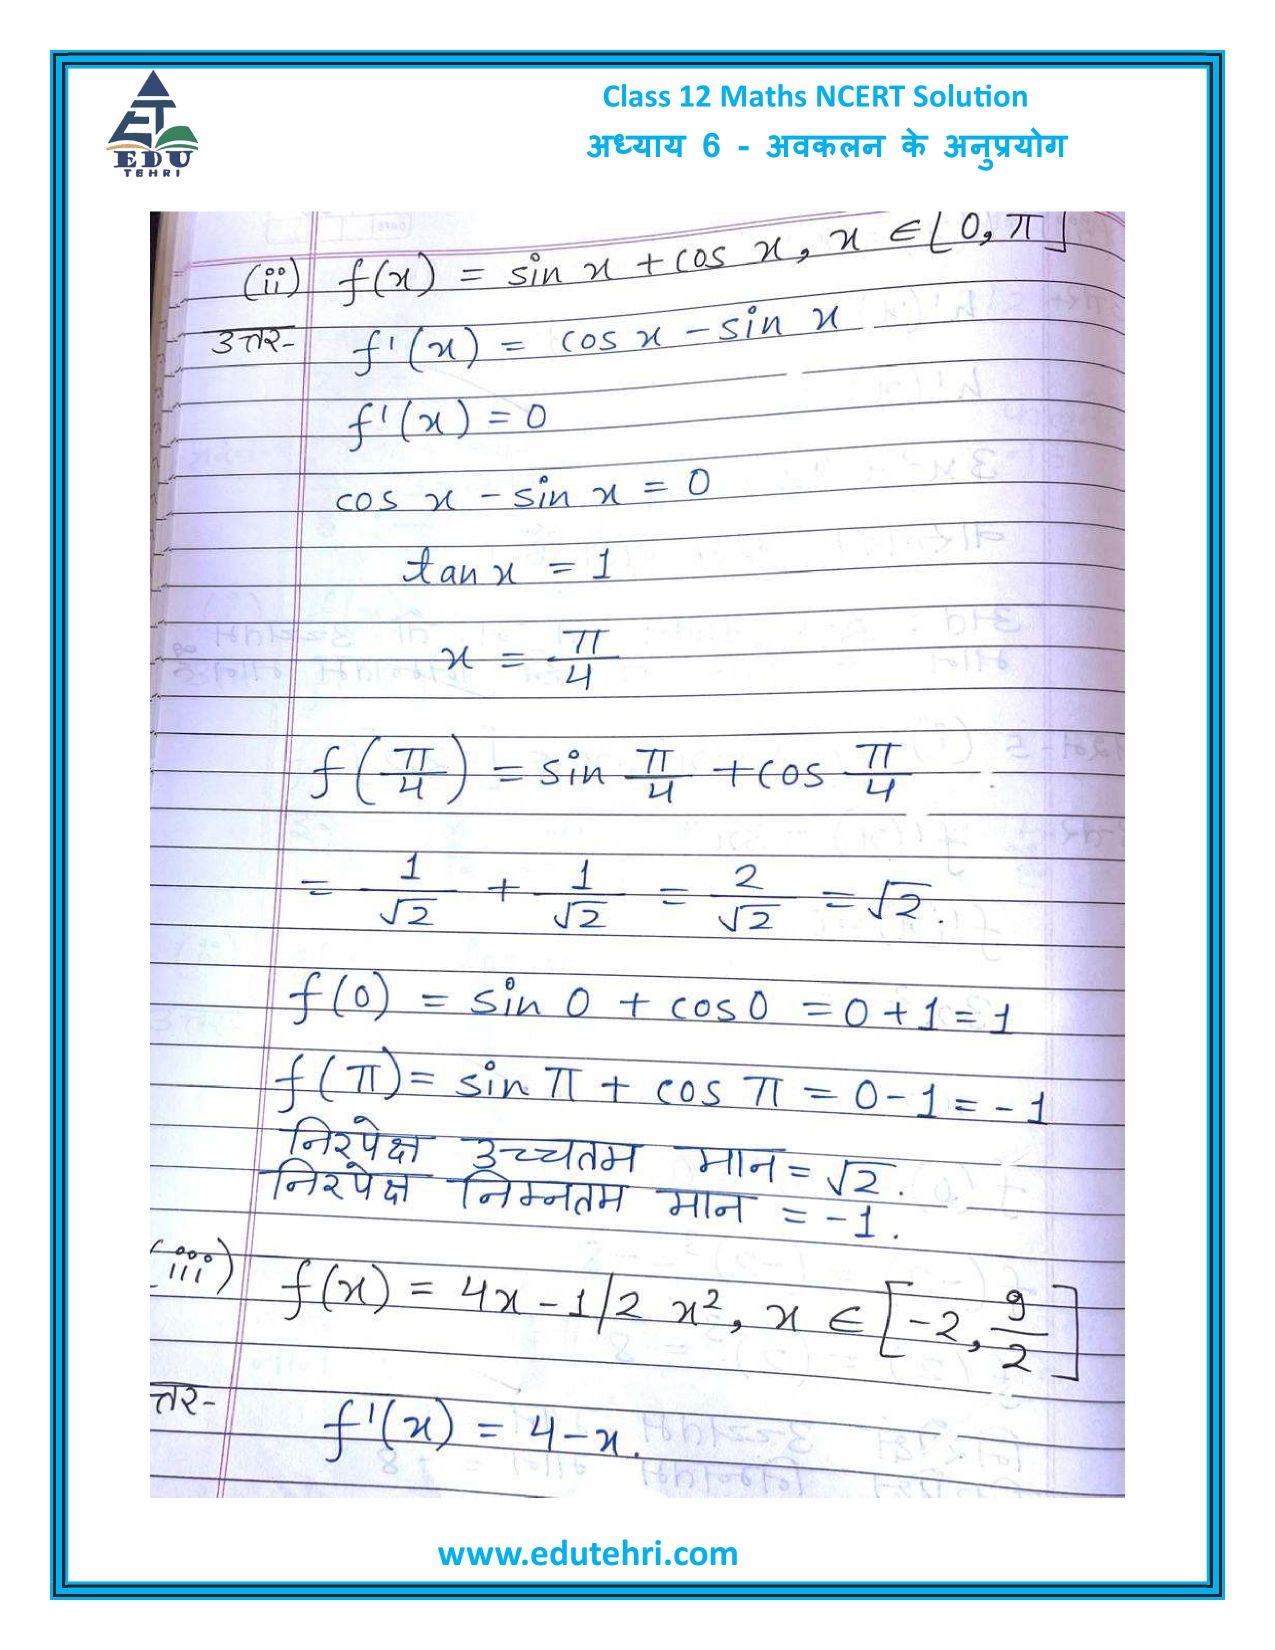 ET
EDU
TEHRI
Class 12 Maths NCERT Solution
अध्याय 6 - अवकलन के अनुप्रयोग
(ii) f(x) = sin x + cos x, x ∈ [0, π]
उत्तर- f'(x) = cos x - sin x
f'(x) = 0
cos x - sin x = 0
tan x = 1
x = π/4
f(π/4) = sin π/4 + cos π/4
= 1/√2 + 1/√2 = 2/√2 = √2.
f(0) = sin 0 + cos 0 = 0 + 1 = 1
f(π) = sin π + cos π = 0 - 1 = -1
निरपेक्ष उच्चतम मान = √2.
निरपेक्ष निम्नतम मान = -1.
(iii) f(x) = 4x - 1/2 x², x ∈ [-2, 9/2]
त्तर- f'(x) = 4 - x.
www.edutehri.com